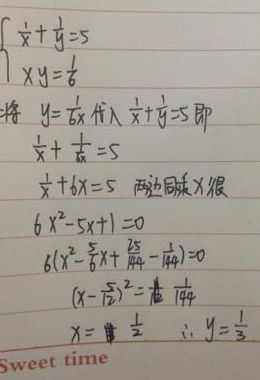 { 1/x + 1/y = 5
xy = 1/6
将 y = 1/6x 代入 1/x + 1/y = 5 即
1/x + 1/(1/6x) = 5
1/x + 6x = 5 两边同乘 x 得
6x² - 5x + 1 = 0
6(x² - 5/6x + 25/144 - 1/144) = 0
(x - 5/12)² = 1/144
x = 1/2 ∴ y = 1/3
Sweet time